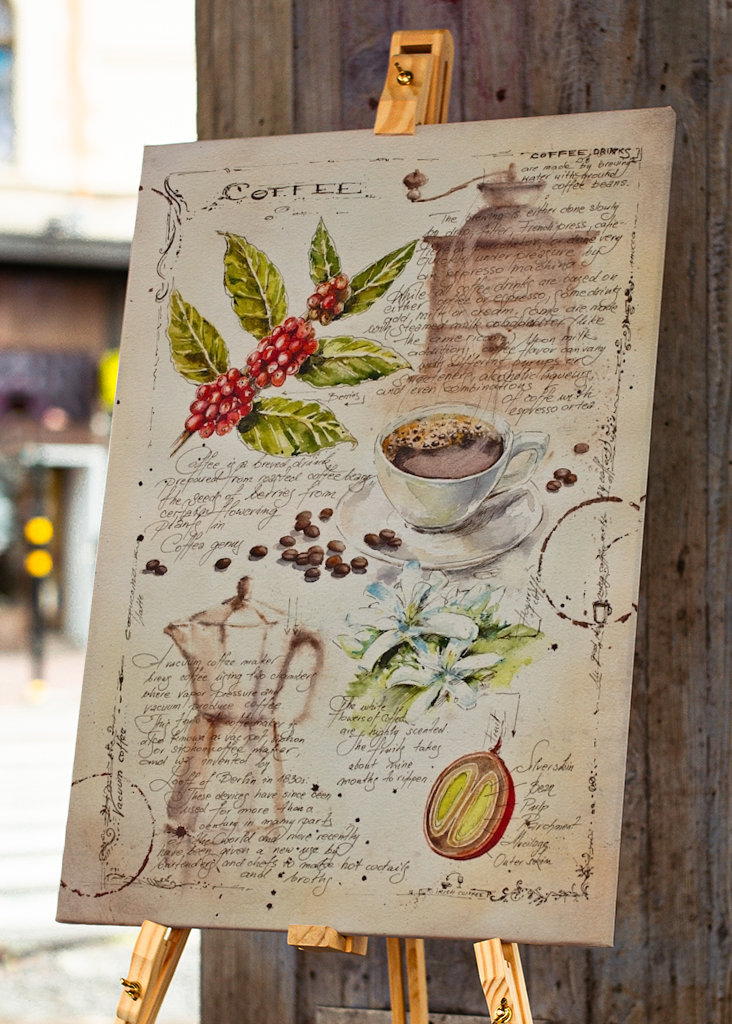 COFFEE
COFFEE DRINKS
are made by brewing
water with ground
coffee beans.
The brewing is either done slowly
by drip, filter, French press, cafe-
or done very
under pressure by
espresso machine
While all coffee drinks are based on
either coffee or espresso, some drinks
add milk or cream, some are made
with steamed milk
the americano) Upon milk
additions, coffee flavor can vary
with different syrups or
sweeteners, alcoholic liqueurs,
and even combinations
of coffee with
espresso or tea.
Berries
Coffee is a brewed drink
prepared from roasted coffee beans
the seeds of berries from
certain flowering
plants in
Coffea genus
A vacuum coffee maker
brews coffee using two chambers
where vapor pressure and
vacuum produce coffee
This
also known as vac pot, siphon
or siphon coffee maker,
and was invented by
Loeff of Berlin in 1830s.
These devices have since been
used for more than a
century in many parts
of the world and more recently
have been given a new use by
bartenders and chefs to make hot coctails
and broths
Vacuum coffee
The white
flowers of coffee
are highly scented.
The fruite takes
about nine
months to ripen.
Fruit
Silverskin
Bean
Pulp
Parchment
Outer skin